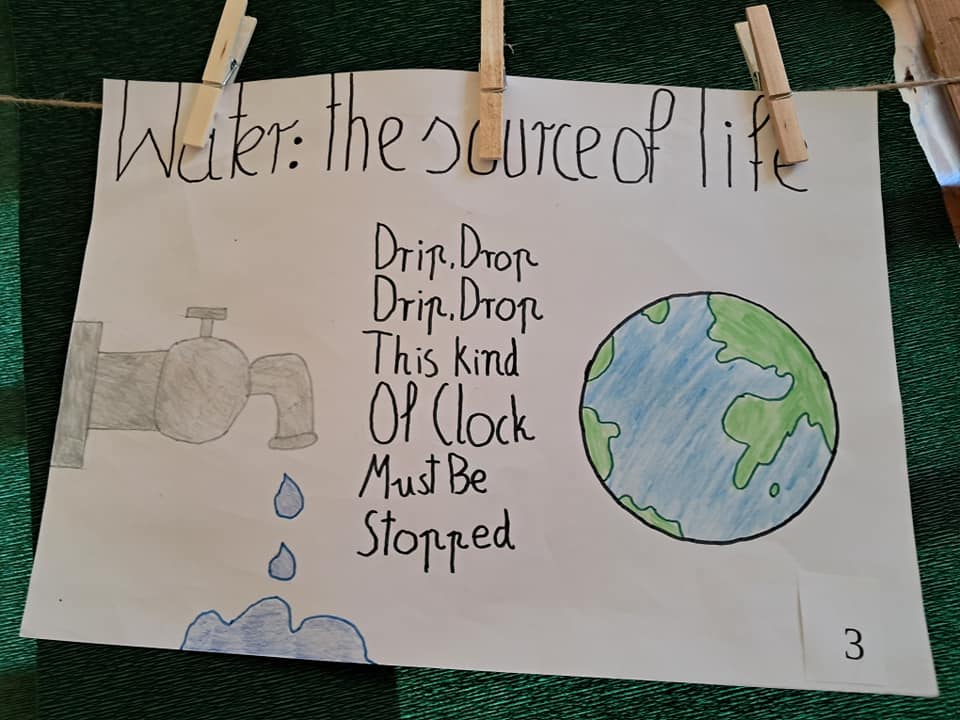 Water: the source of life
Drip, Drop
Drip, Drop
This kind
Of Clock
Must Be
Stopped
3